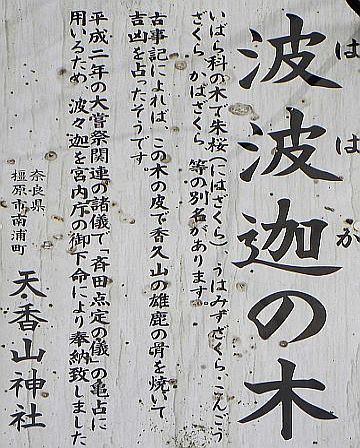 波波迦の木
は は か
いばら科の木で朱桜(にはざくら)うはみずざくら、こんごう
ざくら、かばざくら 等の別名があります。
古事記によれば、この木の皮で香久山の雄鹿の骨を焼いて
吉凶を占ったそうです
平成二年の大嘗祭関連の諸儀で「斉田点定の儀」の亀占に
用いるため、波々迦を宮内庁の御下命により奉納致しました
奈良県
橿原市南浦町
天香山神社